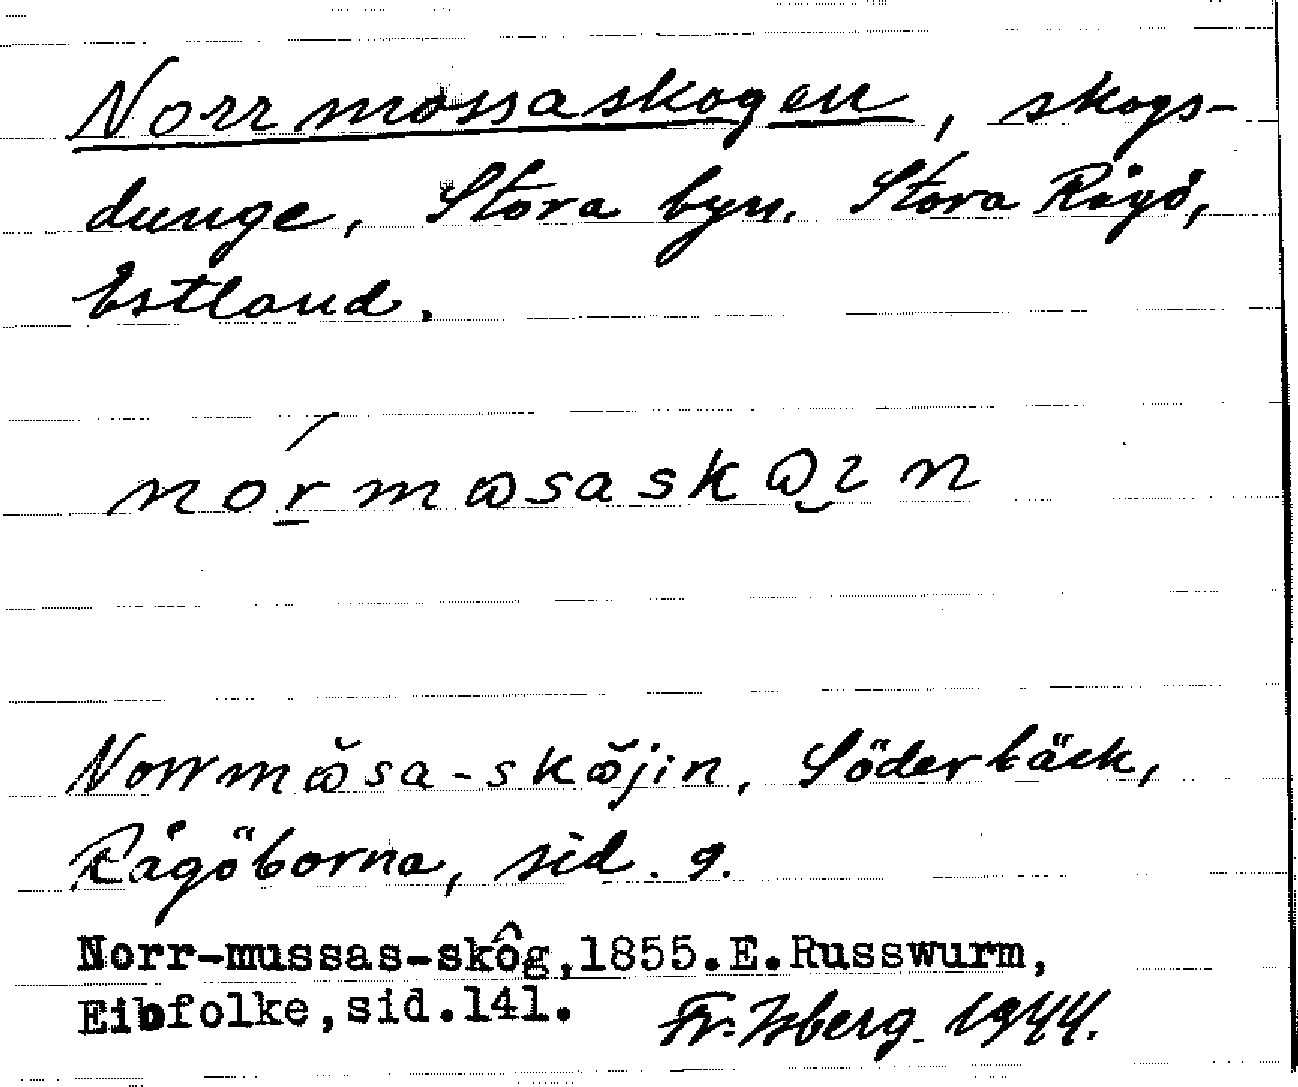 Norrmossaskogen, skogs-
dunge, Stora byn. Stora Rågö,
Estland.
nór̲mɷsaskɷ̯ın
Norrmɷ̆sa-skɷ̆jin, Söderbäck,
Rågöborna, sid. 9.
Norr-mussas-skôg,1855.E.Russwurm,
Eibfolke,sid.141.
Fr. Isberg. 1944.